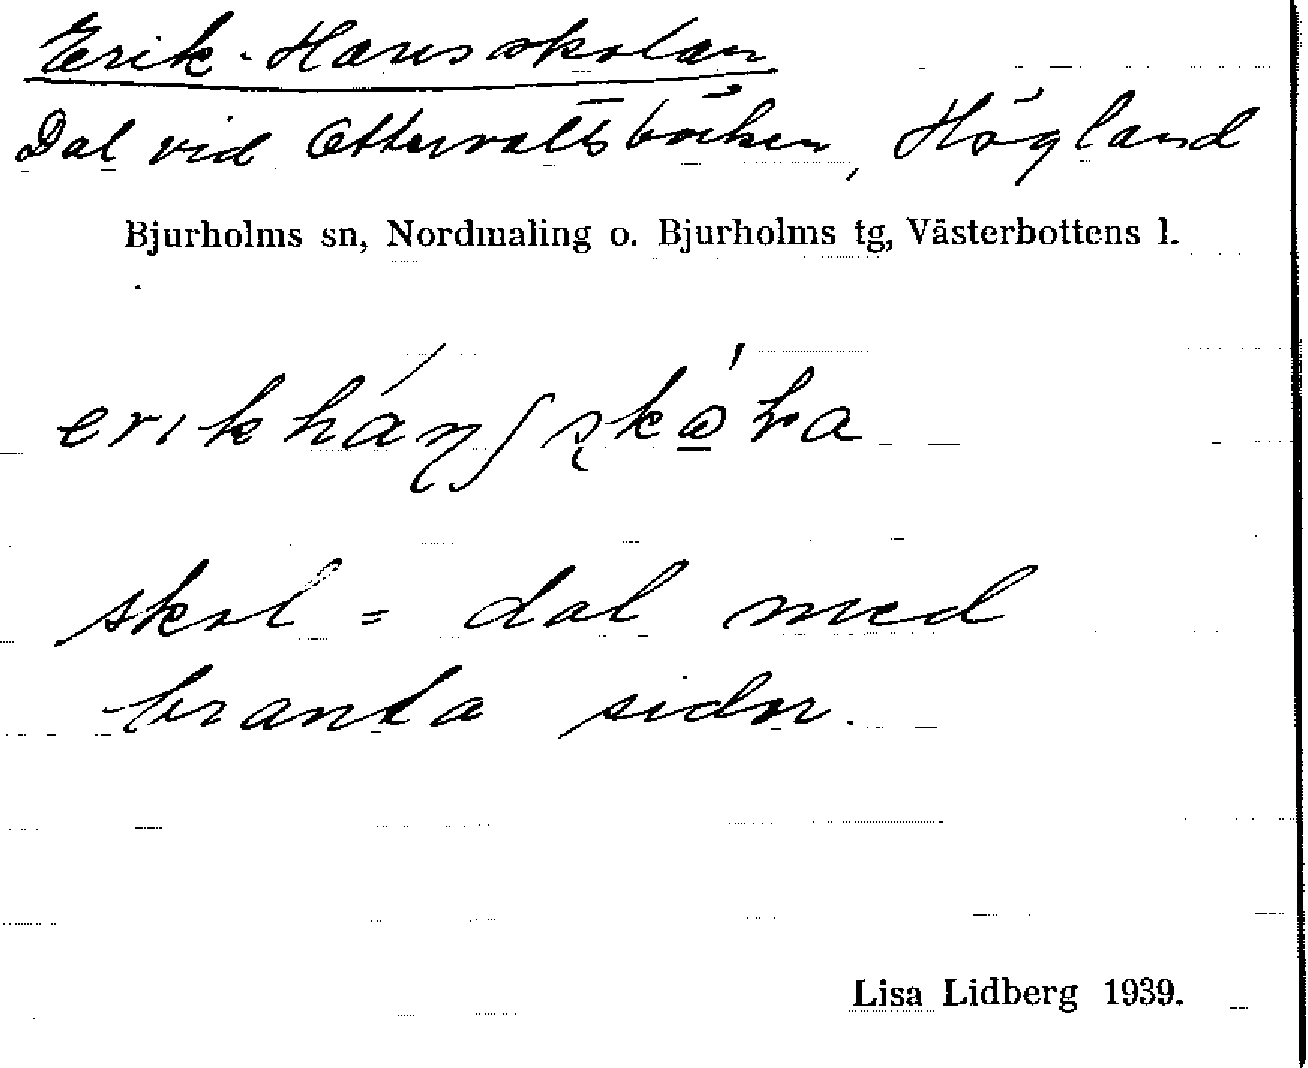 Erik-Hansskolen
Dal vid Ottervallsbäcken, Högland
Bjurholms sn, Nordmaling o. Bjurholms tg, Västerbottens l.
skol = dal med
branta sidor.
Lisa Lidberg 1939.